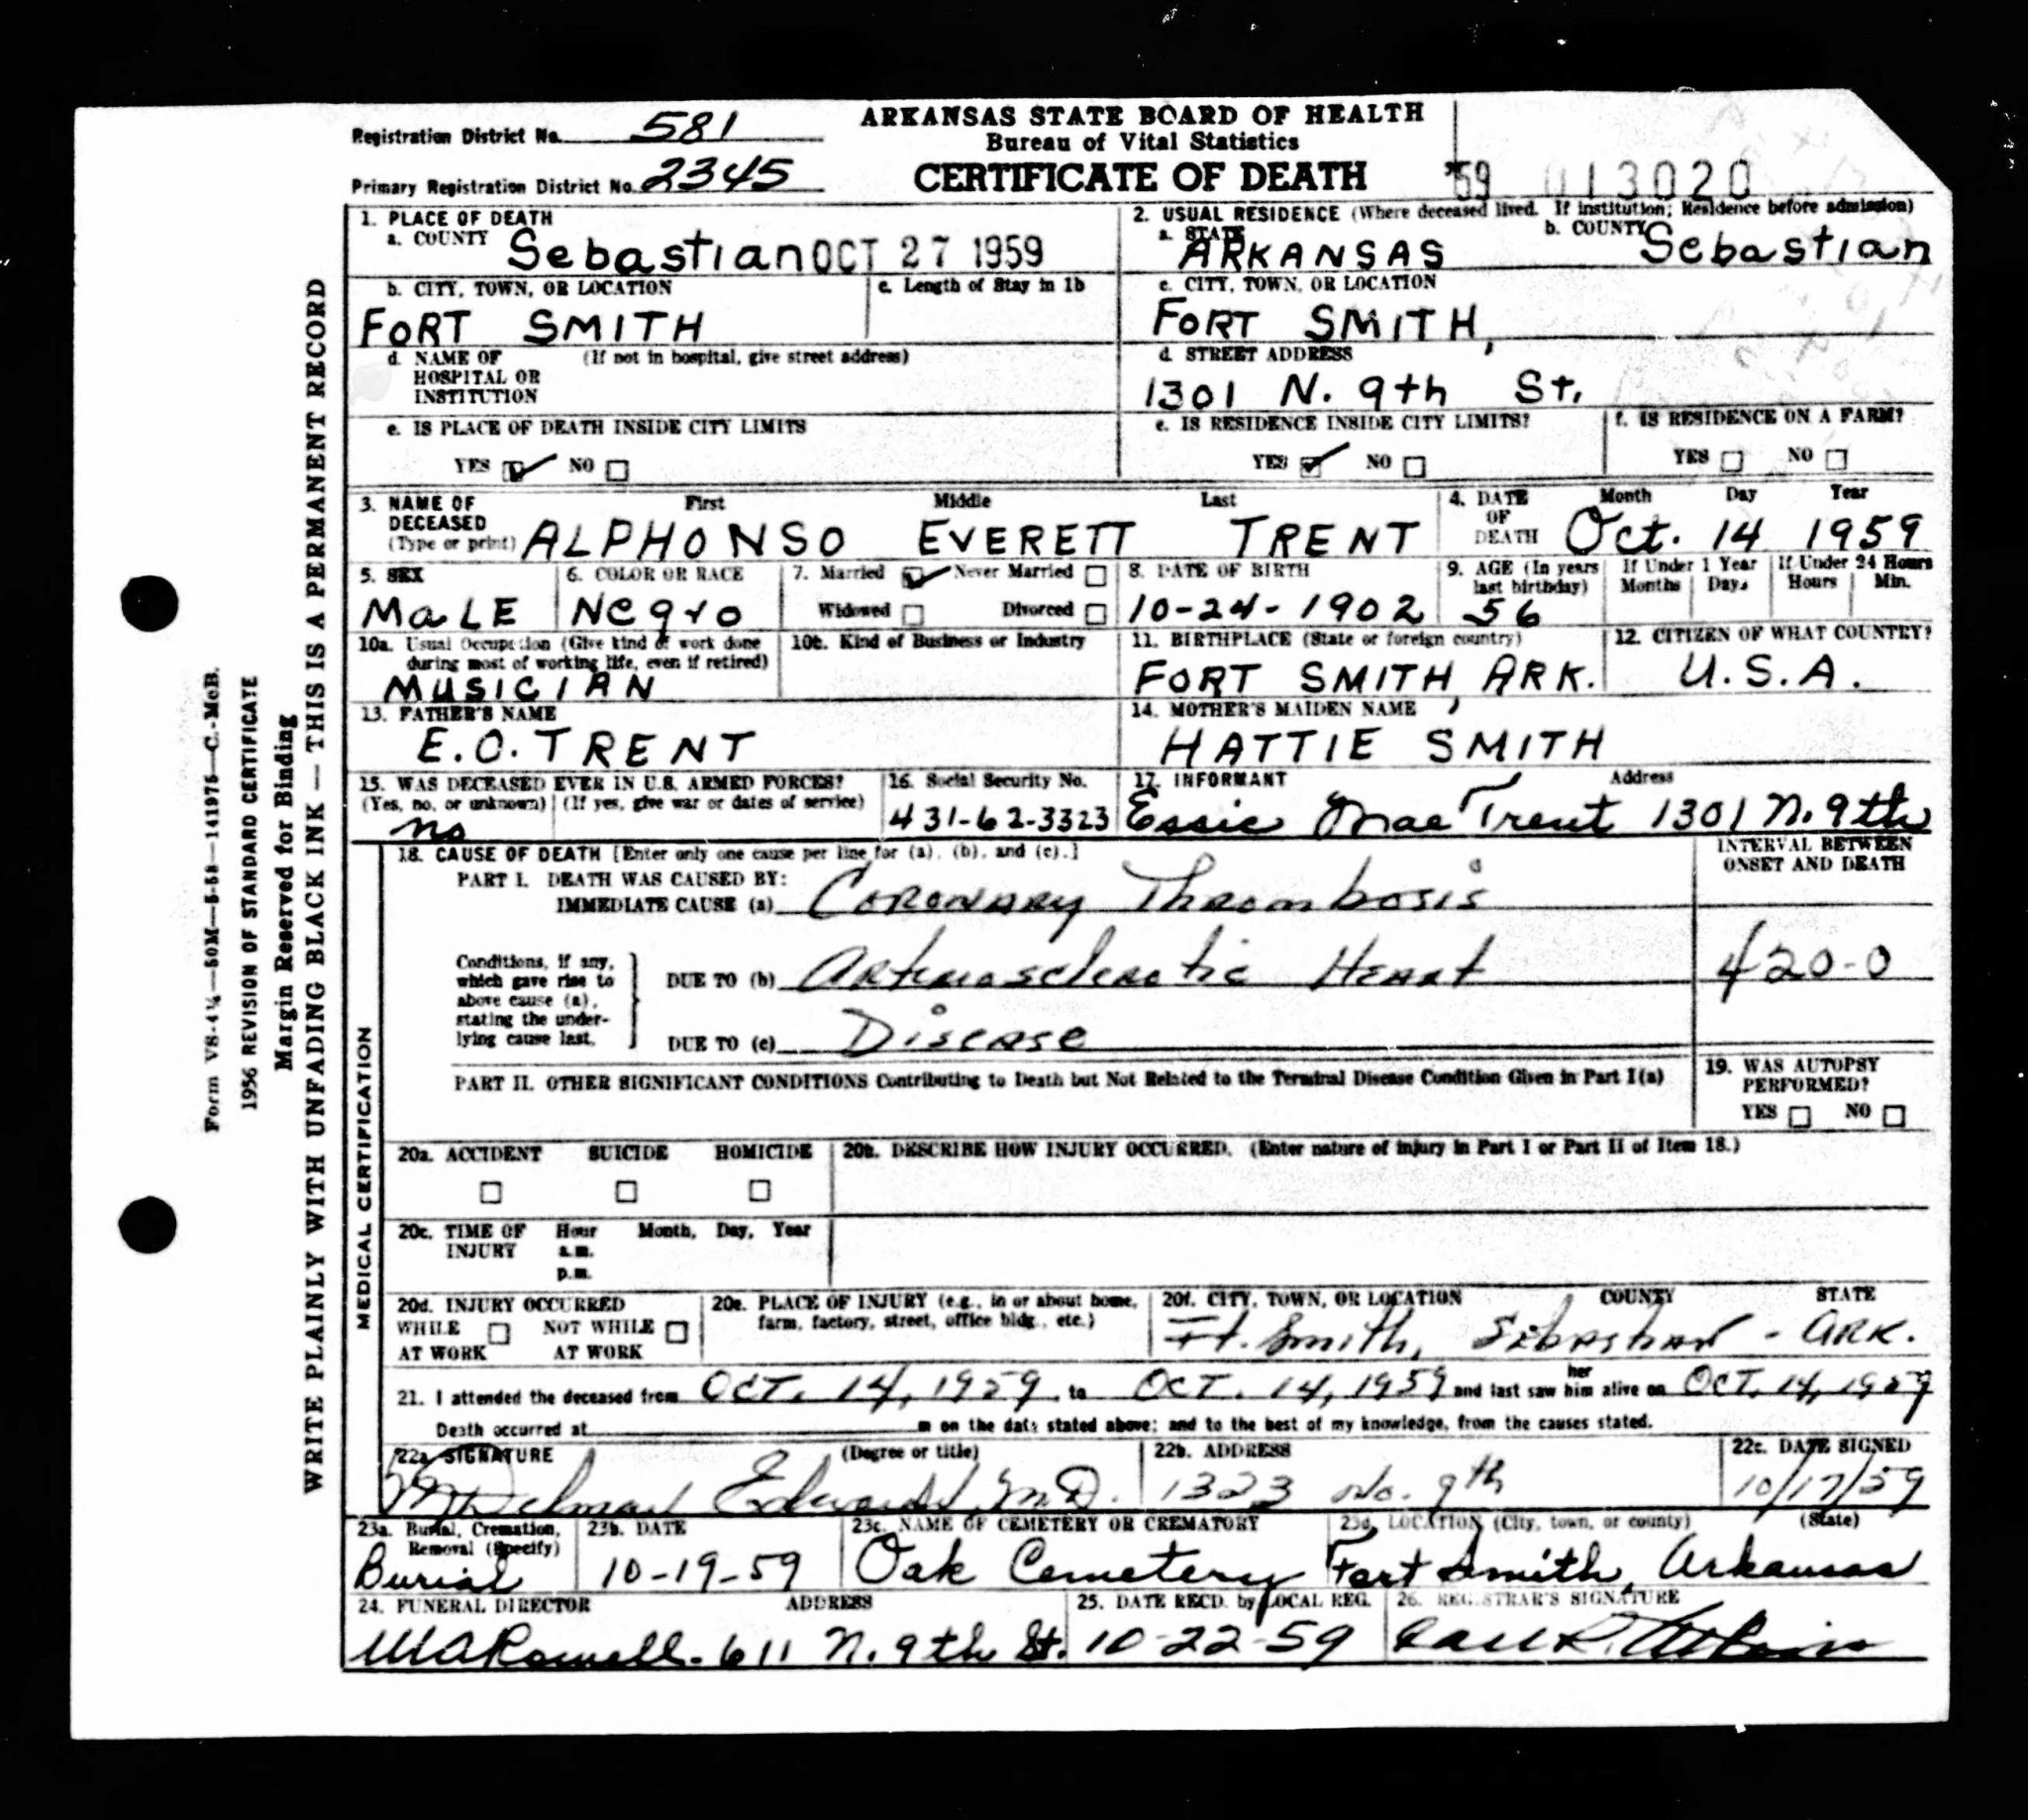 ARKANSAS STATE BOARD OF HEALTH
Bureau of Vital Statistics
CERTIFICATE OF DEATH
Registration District No. 581
Primary Registration District No. 2345
'59 013020
1. PLACE OF DEATH
a. COUNTY Sebastian OCT 27 1959
b. CITY, TOWN, OR LOCATION
FORT SMITH
c. Length of Stay in 1b
d. NAME OF HOSPITAL OR INSTITUTION (If not in hospital, give street address)
e. IS PLACE OF DEATH INSIDE CITY LIMITS
YES ☑ NO ☐
2. USUAL RESIDENCE (Where deceased lived. If institution; Residence before admission)
a. STATE ARKANSAS
b. COUNTY Sebastian
c. CITY, TOWN, OR LOCATION
FORT SMITH,
d. STREET ADDRESS
1301 N. 9th St.
e. IS RESIDENCE INSIDE CITY LIMITS?
YES ☑ NO ☐
f. IS RESIDENCE ON A FARM?
YES ☐ NO ☐
3. NAME OF DECEASED (Type or print)
First Middle Last
ALPHONSO EVERETT TRENT
4. DATE OF DEATH
Month Day Year
Oct. 14 1959
5. SEX
MaLE
6. COLOR OR RACE
Negro
7. Married ☑ Never Married ☐
Widowed ☐ Divorced ☐
8. DATE OF BIRTH
10-24-1902
9. AGE (In years last birthday)
56
If Under 1 Year
Months Days
If Under 24 Hours
Hours Min.
10a. Usual Occupation (Give kind of work done during most of working life, even if retired)
MUSICIAN
10b. Kind of Business or Industry
11. BIRTHPLACE (State or foreign country)
FORT SMITH, ARK.
12. CITIZEN OF WHAT COUNTRY?
U.S.A.
13. FATHER'S NAME
E.O. TRENT
14. MOTHER'S MAIDEN NAME
HATTIE SMITH
15. WAS DECEASED EVER IN U.S. ARMED FORCES?
(Yes, no, or unknown) (If yes, give war or dates of service)
no
16. Social Security No.
431-62-3323
17. INFORMANT Address
Essie Mae Trent 1301 N. 9th
MEDICAL CERTIFICATION
18. CAUSE OF DEATH [Enter only one cause per line for (a), (b), and (c).]
INTERVAL BETWEEN ONSET AND DEATH
PART I. DEATH WAS CAUSED BY:
IMMEDIATE CAUSE (a) Coronary Thrombosis
Conditions, if any, which gave rise to above cause (a), stating the underlying cause last.
DUE TO (b) Arteriosclerotic Heart
420-0
DUE TO (c) Disease
PART II. OTHER SIGNIFICANT CONDITIONS Contributing to Death but Not Related to the Terminal Disease Condition Given in Part I(a)
19. WAS AUTOPSY PERFORMED?
YES ☐ NO ☐
20a. ACCIDENT SUICIDE HOMICIDE
☐ ☐ ☐
20b. DESCRIBE HOW INJURY OCCURRED. (Enter nature of injury in Part I or Part II of Item 18.)
20c. TIME OF INJURY
Hour Month, Day, Year
a.m.
p.m.
20d. INJURY OCCURRED
WHILE AT WORK ☐ NOT WHILE AT WORK ☐
20e. PLACE OF INJURY (e.g., in or about home, farm, factory, street, office bldg., etc.)
20f. CITY, TOWN, OR LOCATION COUNTY STATE
Ft. Smith, Sebastian - ARK.
21. I attended the deceased from OCT. 14, 1959 to OCT. 14, 1959 and last saw her him alive on OCT. 14, 1959
Death occurred at m on the date stated above; and to the best of my knowledge, from the causes stated.
22a. SIGNATURE (Degree or title)
M.D.
22b. ADDRESS
1323 No. 9th
22c. DATE SIGNED
10/17/59
23a. Burial, Cremation, Removal (Specify)
Burial
23b. DATE
10-19-59
23c. NAME OF CEMETERY OR CREMATORY
Oak Cemetery
23d. LOCATION (City, town, or county) (State)
Fort Smith, Arkansas
24. FUNERAL DIRECTOR ADDRESS
611 N. 9th St.
25. DATE RECD. by LOCAL REG.
10-22-59
26. REGISTRAR'S SIGNATURE
Form VS-4¼—50M—5-58—141975—C.-McB.
1956 REVISION OF STANDARD CERTIFICATE
Margin Reserved for Binding
WRITE PLAINLY WITH UNFADING BLACK INK — THIS IS A PERMANENT RECORD